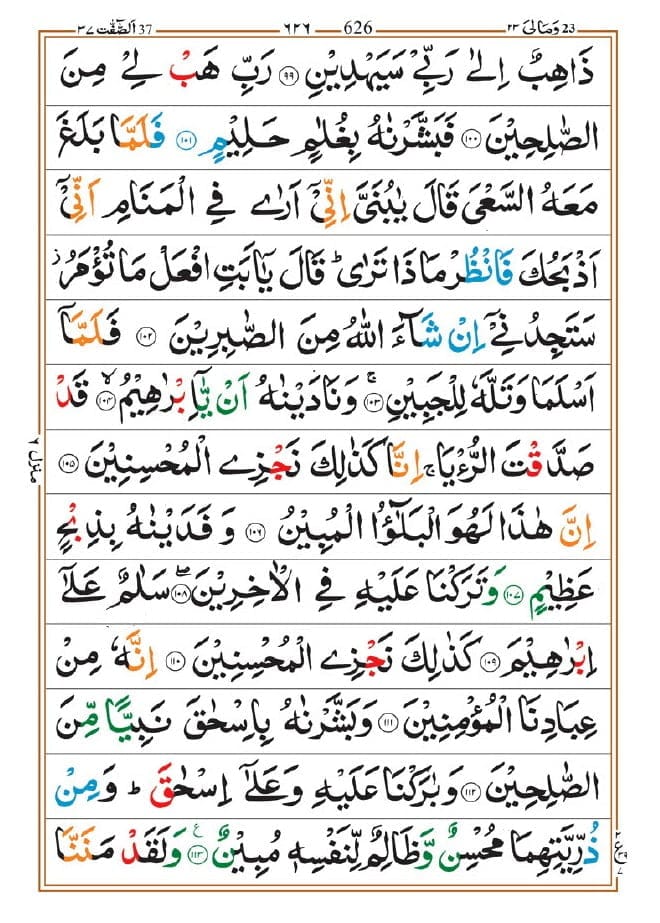 37 اَلصّٰفّٰت ٣٧ ٦٢٦ 626 23 وَمَالِیَ ٢٣
ذَاهِبٌ اِلٰى رَبِّىْ سَيَهْدِيْنِ ﴿٩٩﴾ رَبِّ هَبْ لِىْ مِنَ
الصّٰلِحِيْنَ ﴿١٠٠﴾ فَبَشَّرْنٰهُ بِغُلٰمٍ حَلِيْمٍ ﴿١٠١﴾ فَلَمَّا بَلَغَ
مَعَهُ السَّعْىَ قَالَ يٰبُنَىَّ اِنِّىْۤ اَرٰى فِى الْمَنَامِ اَنِّىْۤ
اَذْبَحُكَ فَانْظُرْ مَاذَا تَرٰىؕ قَالَ يٰۤاَبَتِ افْعَلْ مَا تُؤْمَرُز
سَتَجِدُنِىْۤ اِنْ شَآءَ اللّٰهُ مِنَ الصّٰبِرِيْنَ ﴿١٠٢﴾ فَلَمَّاۤ
اَسْلَمَا وَتَلَّهٗ لِلْجَبِيْنِۚ ﴿١٠٣﴾ وَنَادَيْنٰهُ اَنْ يّٰۤاِبْرٰهِيْمُۙ ﴿١٠٤﴾ قَدْ
صَدَّقْتَ الرُّءْيَاۚ اِنَّا كَذٰلِكَ نَجْزِى الْمُحْسِنِيْنَ ﴿١٠٥﴾
اِنَّ هٰذَا لَهُوَ الْبَلٰٓؤُا الْمُبِيْنُ ﴿١٠٦﴾ وَفَدَيْنٰهُ بِذِبْحٍ
عَظِيْمٍ ﴿١٠٧﴾ وَتَرَكْنَا عَلَيْهِ فِى الْاٰخِرِيْنَۖ ﴿١٠٨﴾ سَلٰمٌ عَلٰٓى
اِبْرٰهِيْمَ ﴿١٠٩﴾ كَذٰلِكَ نَجْزِى الْمُحْسِنِيْنَ ﴿١١٠﴾ اِنَّهٗ مِنْ
عِبَادِنَا الْمُؤْمِنِيْنَ ﴿١١١﴾ وَبَشَّرْنٰهُ بِاِسْحٰقَ نَبِيًّا مِّنَ
الصّٰلِحِيْنَ ﴿١١٢﴾ وَبٰرَكْنَا عَلَيْهِ وَعَلٰٓى اِسْحٰقَؕ وَمِنْ
ذُرِّيَّتِهِمَا مُحْسِنٌ وَّظَالِمٌ لِّنَفْسِهٖ مُبِيْنٌ ﴿١١٣﴾ۧ وَلَقَدْ مَنَنَّا
منزل ٦
ع